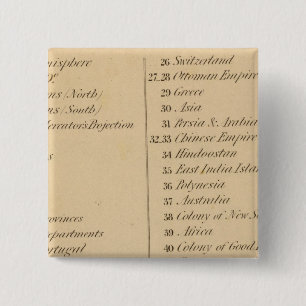 misphere
do
ns (North)
ns (South)
ercator's Projection
s
ovinces
epartments
ortugal
26 Switzerland
27_28 Ottoman Empire
29 Greece
30 Asia
31 Persia & Arabia
32_33 Chinese Empire
34 Hindoostan
35 East India Islan
36 Polynesia
37 Australia
38 Colony of New S
39 Africa
40 Colony of Good H